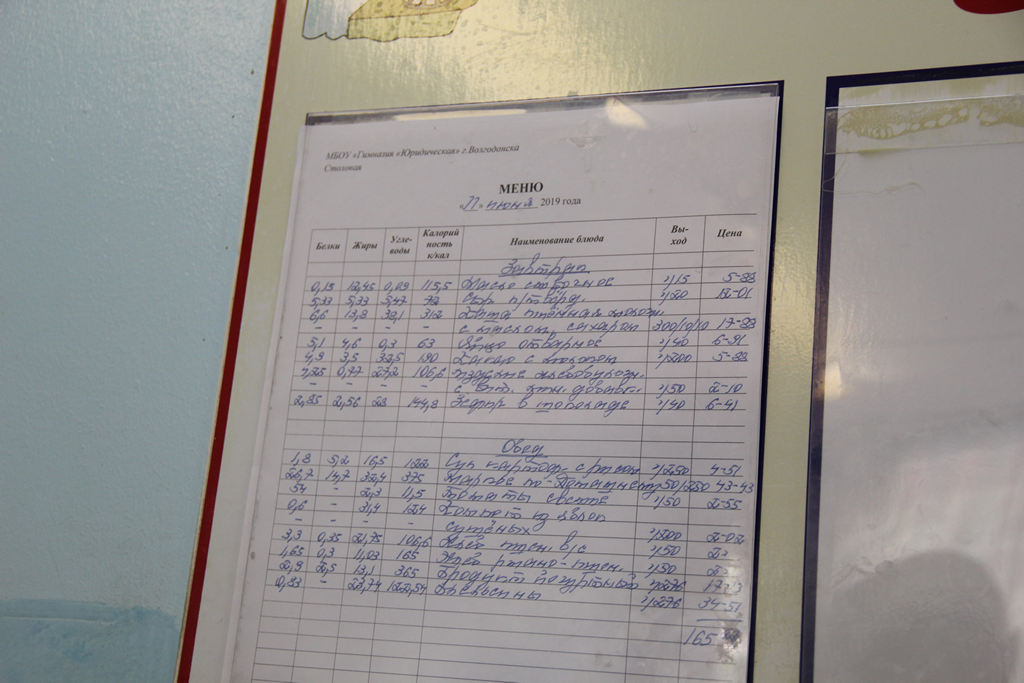 МБОУ «Гимназия «Юридическая» г.Волгодонска
Столовая
МЕНЮ
«11» июня 2019 года
Белки Жиры Угле-воды Калорий ность к/кал Наименование блюда Вы-ход Цена
Завтрак
0,15 12,45 0,09 115,5 Масло сливочное 1/15 5-88
5,33 5,33 5,47 72 Сыр 1/20 12-01
6,6 13,8 38,1 312 молоч.
- - - - с маслом, сахаром 200/10/10 17-88
5,1 4,6 0,3 63 Яйцо отварное 1/40 6-91
4,9 3,5 32,5 190 Какао с молоком 1/200 5-88
0,77 27,2 106,6
- - - - с 1/50 2-10
2,85 2,56 28 144,8 Зефир в шоколаде 1/40 6-41
Обед
1,8 5,2 16,5 122 Суп картоф. с рисом 1/250 4-51
26,7 14,7 32,4 375 Жаркое по-домашнему 50/250 43-43
54 - 2,3 11,5 Томаты свежие 1/50 2-55
0,6 - 31,4 124 Компот из
- - - - сушёных 1/200 2-02
3,3 0,35 21,75 106,6 Хлеб пшен. в/с 1/50
1,65 0,3 11,03 165 Хлеб ржано-пшен. 1/50
2,9 2,5 13,1 365 Продукт йогуртный
0,83 - 23,74 122,54 Апельсины 1/276 34-51
165